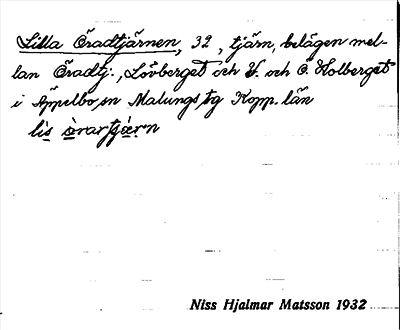 Lilla Öradtjärnen, 32, tjärn, belägen mel-
lan Öradtj:, Lövberget och V. och Ö. Holberget
i Äppelbo sn Malungs tg Kopp. län
lis òrartjæ̣rn
Niss Hjalmar Matsson 1932